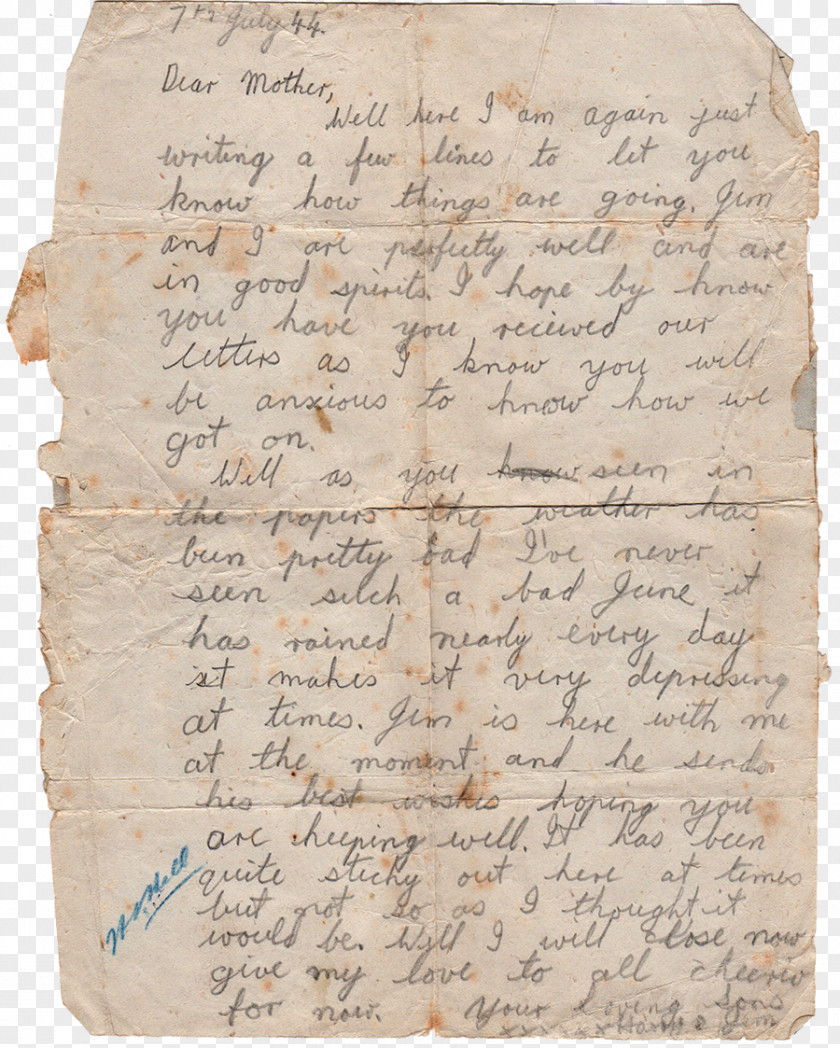 7th July 44.
Dear Mother,
Well here I am again just
writing a few lines to let you
know how things are going. Jim
and I are perfectly well and are
in good spirits. I hope by know
you have you recieved our
letters as I know you will
be anxious to know how we
got on.
Well as you know seen in
the papers the weather has
been pretty bad I've never
seen such a bad June it
has rained nearly every day
it makes it very depressing
at times. Jim is here with me
at the moment and he sends
his best wishes hoping you
are keeping well. It has been
quite sticky out here at times
but not so as I thought it
would be. Well I will close now
give my love to all cheerio
for now. Your loving sons
xxx xx Harry & Jim